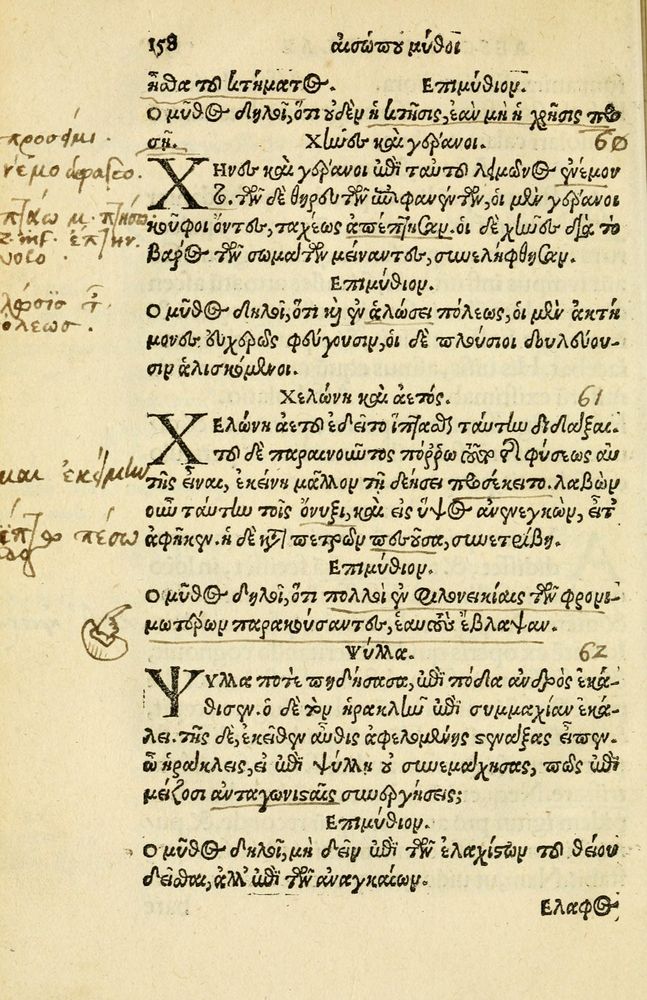 158 αἰσώπου μῦθοι
ᾖσθα τοῦ κτήματος. Ἐπιμύθιον.
Ο μῦθος δηλοῖ, ὅτι οὐδὲν ἡ κτῆσις, ἐὰν μὴ ἡ χρῆσις προ
σῇ. Χῆνες καὶ γέρανοι. 60
ΧΗνες καὶ γέρανοι ἐπὶ ταυτοῦ λειμῶνος ἐνέμον
το. τῶν δὲ θηρευτῶν ἐπιφανέντων, οἱ μὲν γέρανοι
κοῦφοι ὄντες, ταχέως ἀπέπτησαν. οἱ δὲ χῆνες διὰ τὸ
βάρος τῶν σωμάτων μείναντες, συνελήφθησαν.
Επιμύθιον.
Ο μῦθος δηλοῖ, ὅτι καὶ ἐν ἁλώσει πόλεως, οἱ μὲν ἀκτή
μονες εὐχερῶς φεύγουσιν, οἱ δὲ πλούσιοι δουλεύου-
σιν ἁλισκόμενοι.
Χελώνη καὶ ἀετός. 61
ΧΕλώνη ἀετοῦ ἐδεῖτο ἵπτασθαι ταύτην διδάξαι.
τοῦ δὲ παραινοῦντος πόρρω τοῦτο τῆς φύσεως αὐ
τῆς εἶναι, ἐκείνη μᾶλλον τῇ δεήσει προσέκειτο. λαβὼν
οὖν ταύτην τοῖς ὄνυξι, καὶ εἰς ὕψος ἀνενεγκὼν, εἶτ'
ἀφῆκεν. ἡ δὲ κατὰ πετρῶν πεσοῦσα, συνετρίβη.
Επιμύθιον.
Ο μῦθος δηλοῖ, ὅτι πολλοὶ ἐν φιλονεικίαις τῶν φρονι-
μωτέρων παρακούσαντες, ἑαυτοὺς ἔβλαψαν.
Ψύλλα. 62
ΨΥλλα ποτὲ πηδήσασα, ἐπὶ πόδα ἀνδρὸς ἐκά-
θισεν. ὁ δὲ τὸν ἡρακλῆν ἐπὶ συμμαχίαν ἐκά-
λει. τῆς δὲ, ἐκεῖθεν αὖθις ἀφελομένης στενάξας εἶπεν.
ὦ ἡράκλεις, εἰ ἐπὶ ψύλλῃ οὐ συνεμάχησας, πῶς ἐπὶ
μείζοσι ἀνταγωνισταῖς συνεργήσεις;
Επιμύθιον.
Ο μῦθος δηλοῖ, μὴ δεῖν ἐπὶ τῶν ἐλαχίστων τοῦ θείου
δεῖσθαι, ἀλλ' ἐπὶ τῶν ἀναγκαίων.
Ελαφος